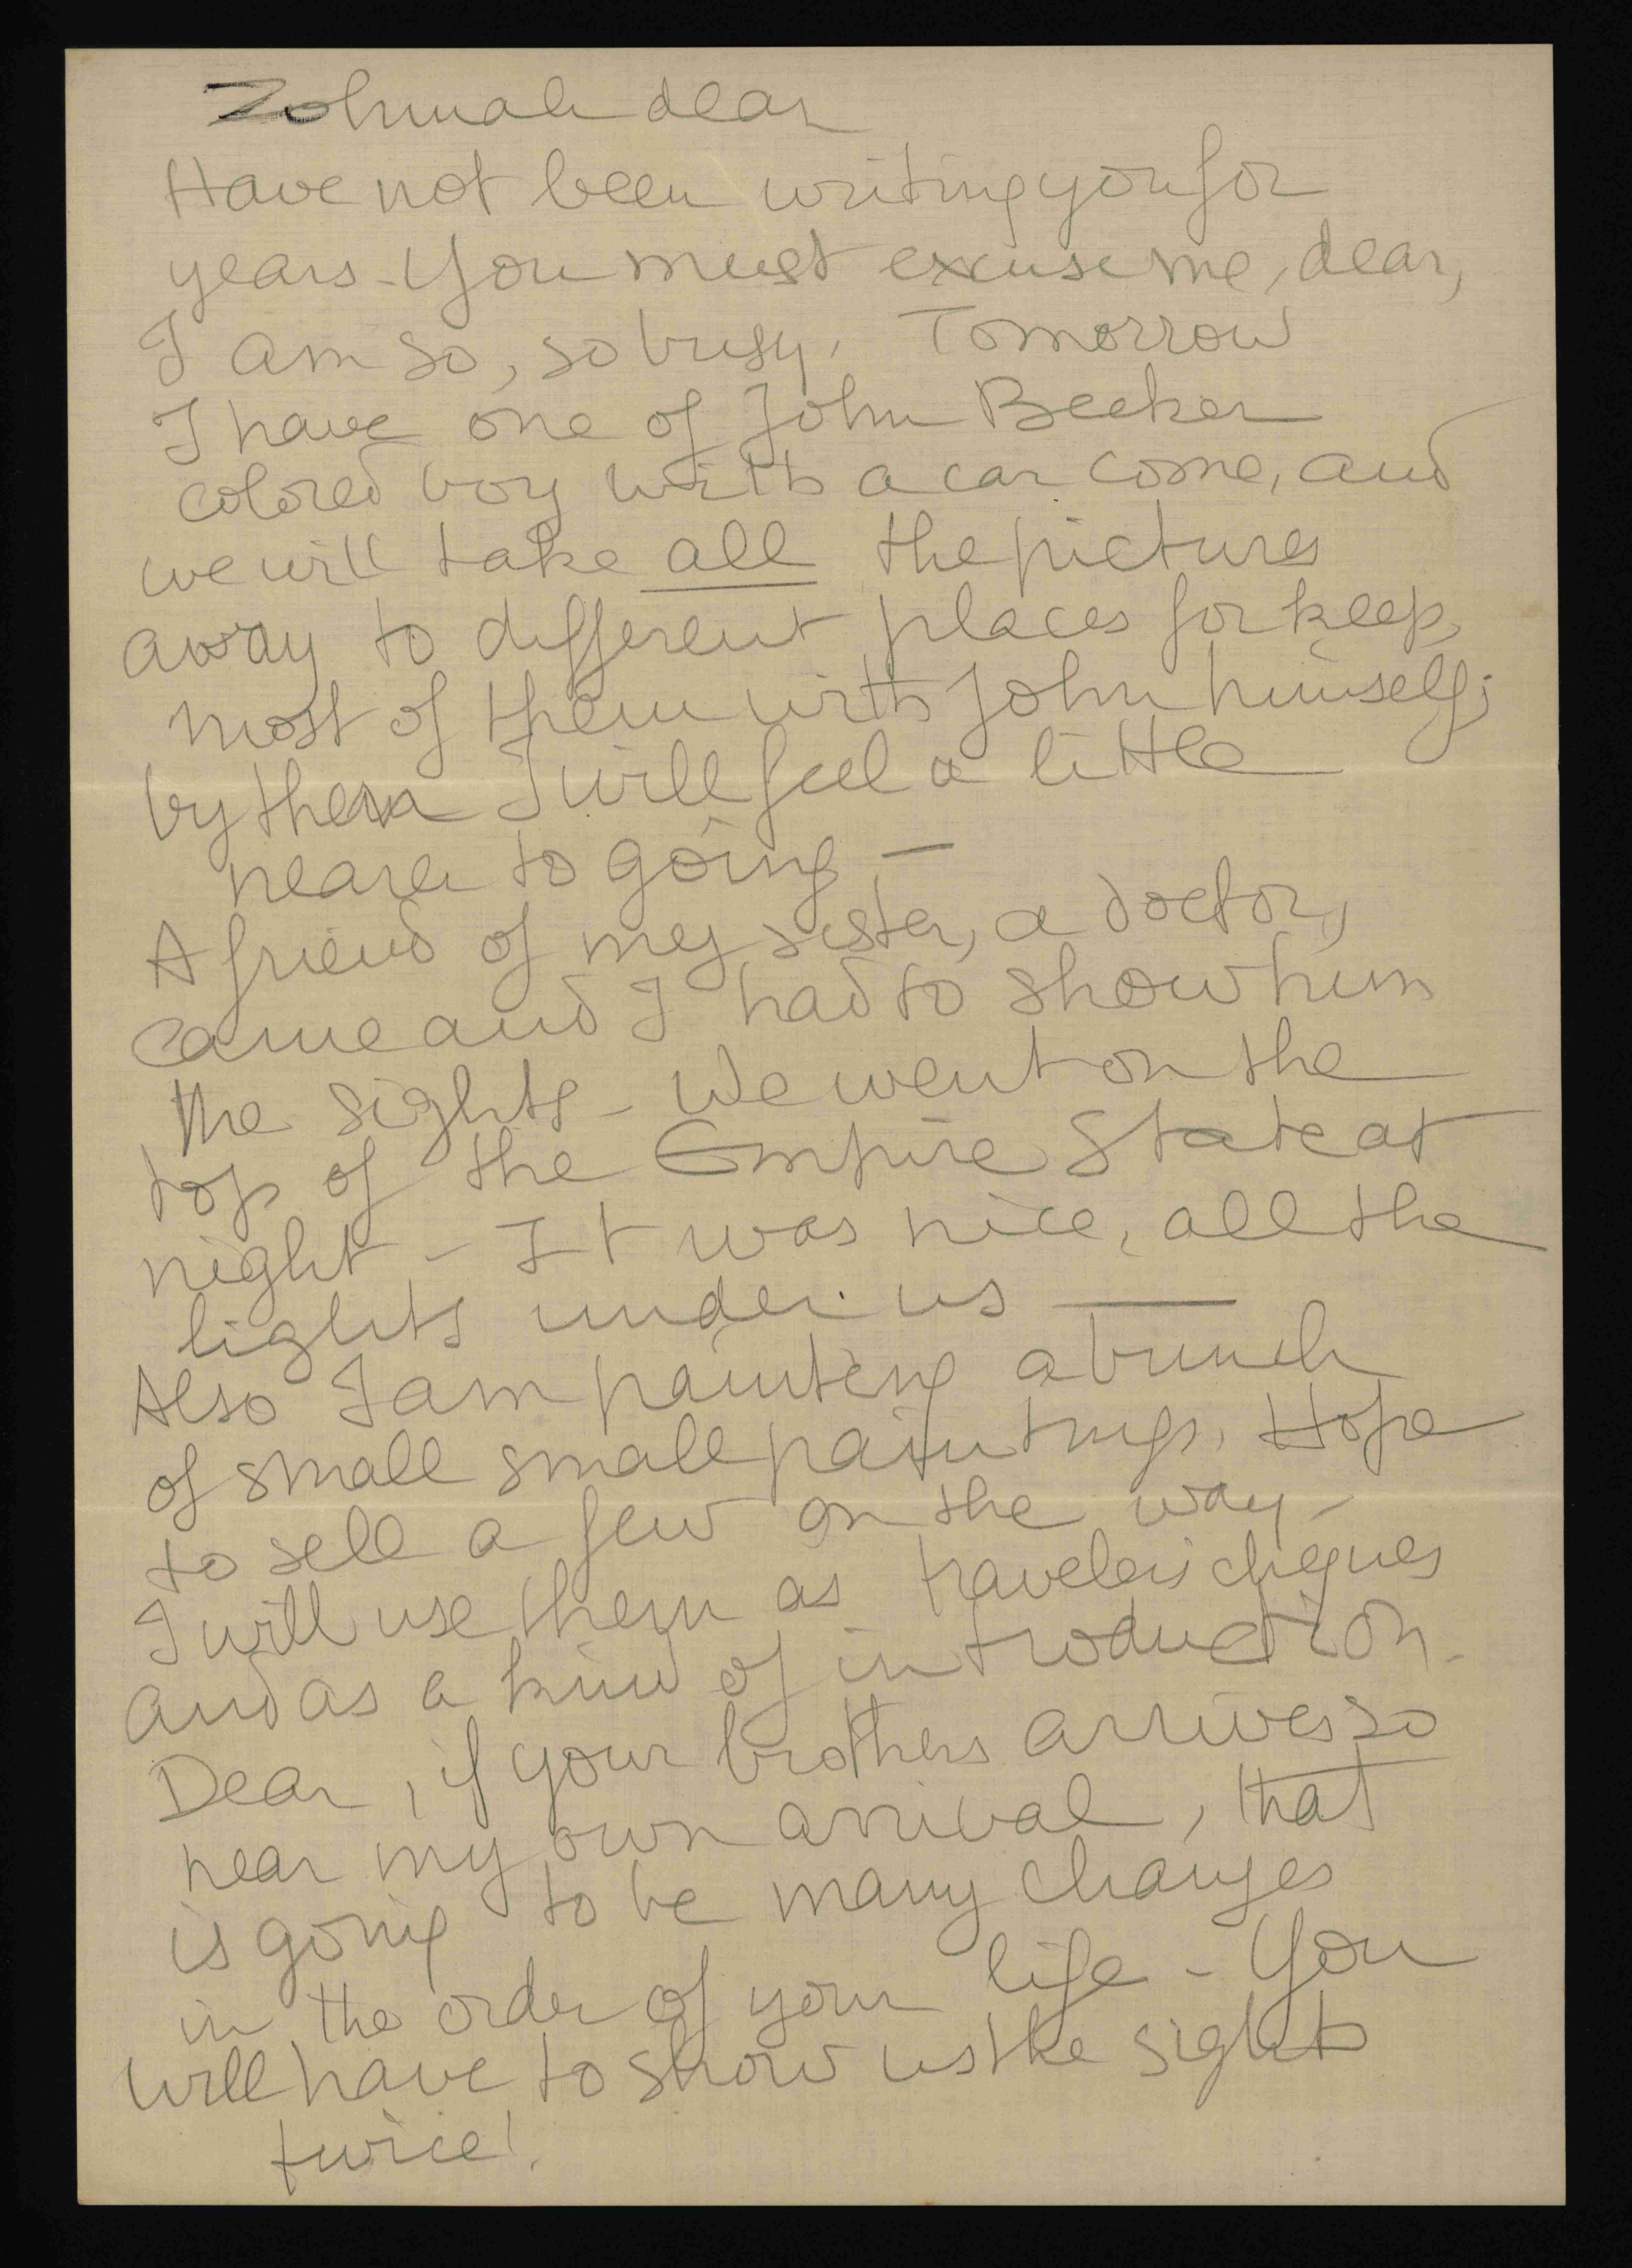 Zohmah dear
Have not been writing you for
years - You must excuse me, dear,
I am so, so busy. Tomorrow
I have one of John Becker
colored boy with a car come, and
we will take all the pictures
away to different places for keep,
most of them with John himself;
by then I will feel a little
nearer to going —
A friend of my sister, a doctor,
came and I had to show him
the sights - We went on the
top of the Empire State at
night - It was nice, all the
lights under us —
Also I am painting a bunch
of small small paintings. Hope
to sell a few on the way -
I will use them as travelers cheques
and as a kind of introduction.
Dear, if your brothers arrives so
near my own arrival, that
is going to be many changes
in the order of your life - You
will have to show us the sights
twice!